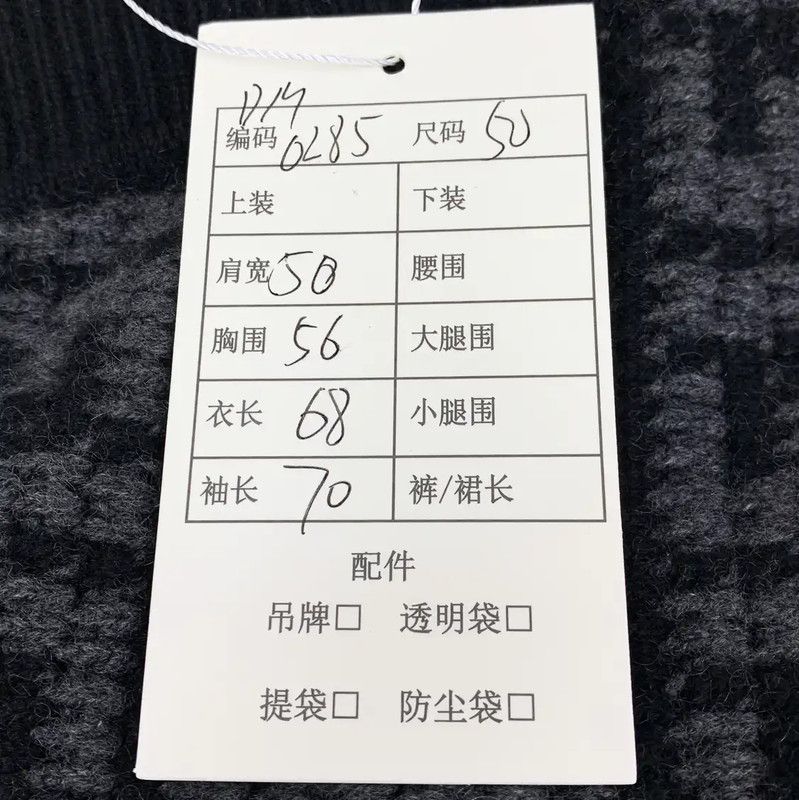 编码 0285 尺码 50
上装 下装
肩宽 50 腰围
胸围 56 大腿围
衣长 68 小腿围
袖长 70 裤/裙长
配件
吊牌□ 透明袋□
提袋□ 防尘袋□